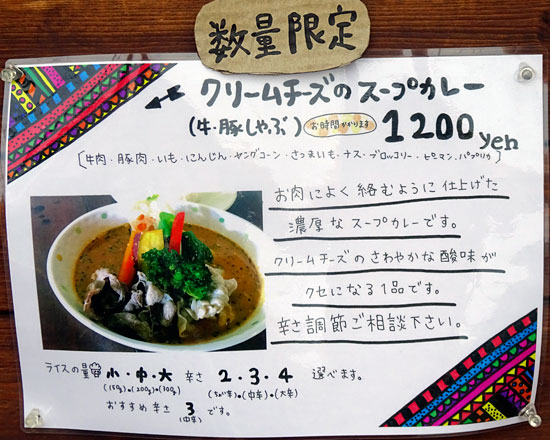 数量限定
クリームチーズのスープカレー
(牛・豚しゃぶ) お時間かかります 1200yen
[牛肉・豚肉・いも・にんじん・ヤングコーン・さつまいも・ナス・ブロッコリー・ピーマン・パプリカ]
お肉によく絡むように仕上げた
濃厚なスープカレーです。
クリームチーズのさわやかな酸味が
クセになる1品です。
辛さ調節ご相談下さい。
ライスの量 小・中・大 辛さ 2・3・4 選べます。
(150g)・(200g)・(300g) (ちょい辛)・(中辛)・(大辛)
おすすめ辛さ 3 です。
(中辛)